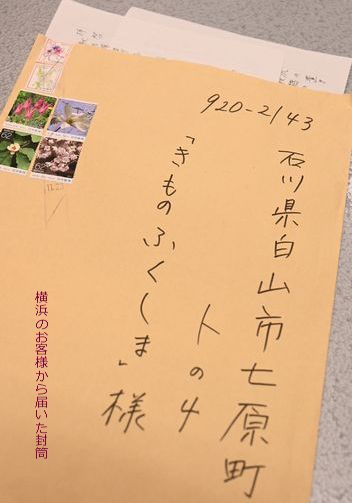 920-2143
石川県白山市七原町
トの4
「きものふくしま」様
横浜のお客様から届いた封筒